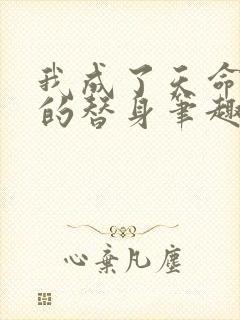 我成了天命
的替身笔趣
心弃凡尘